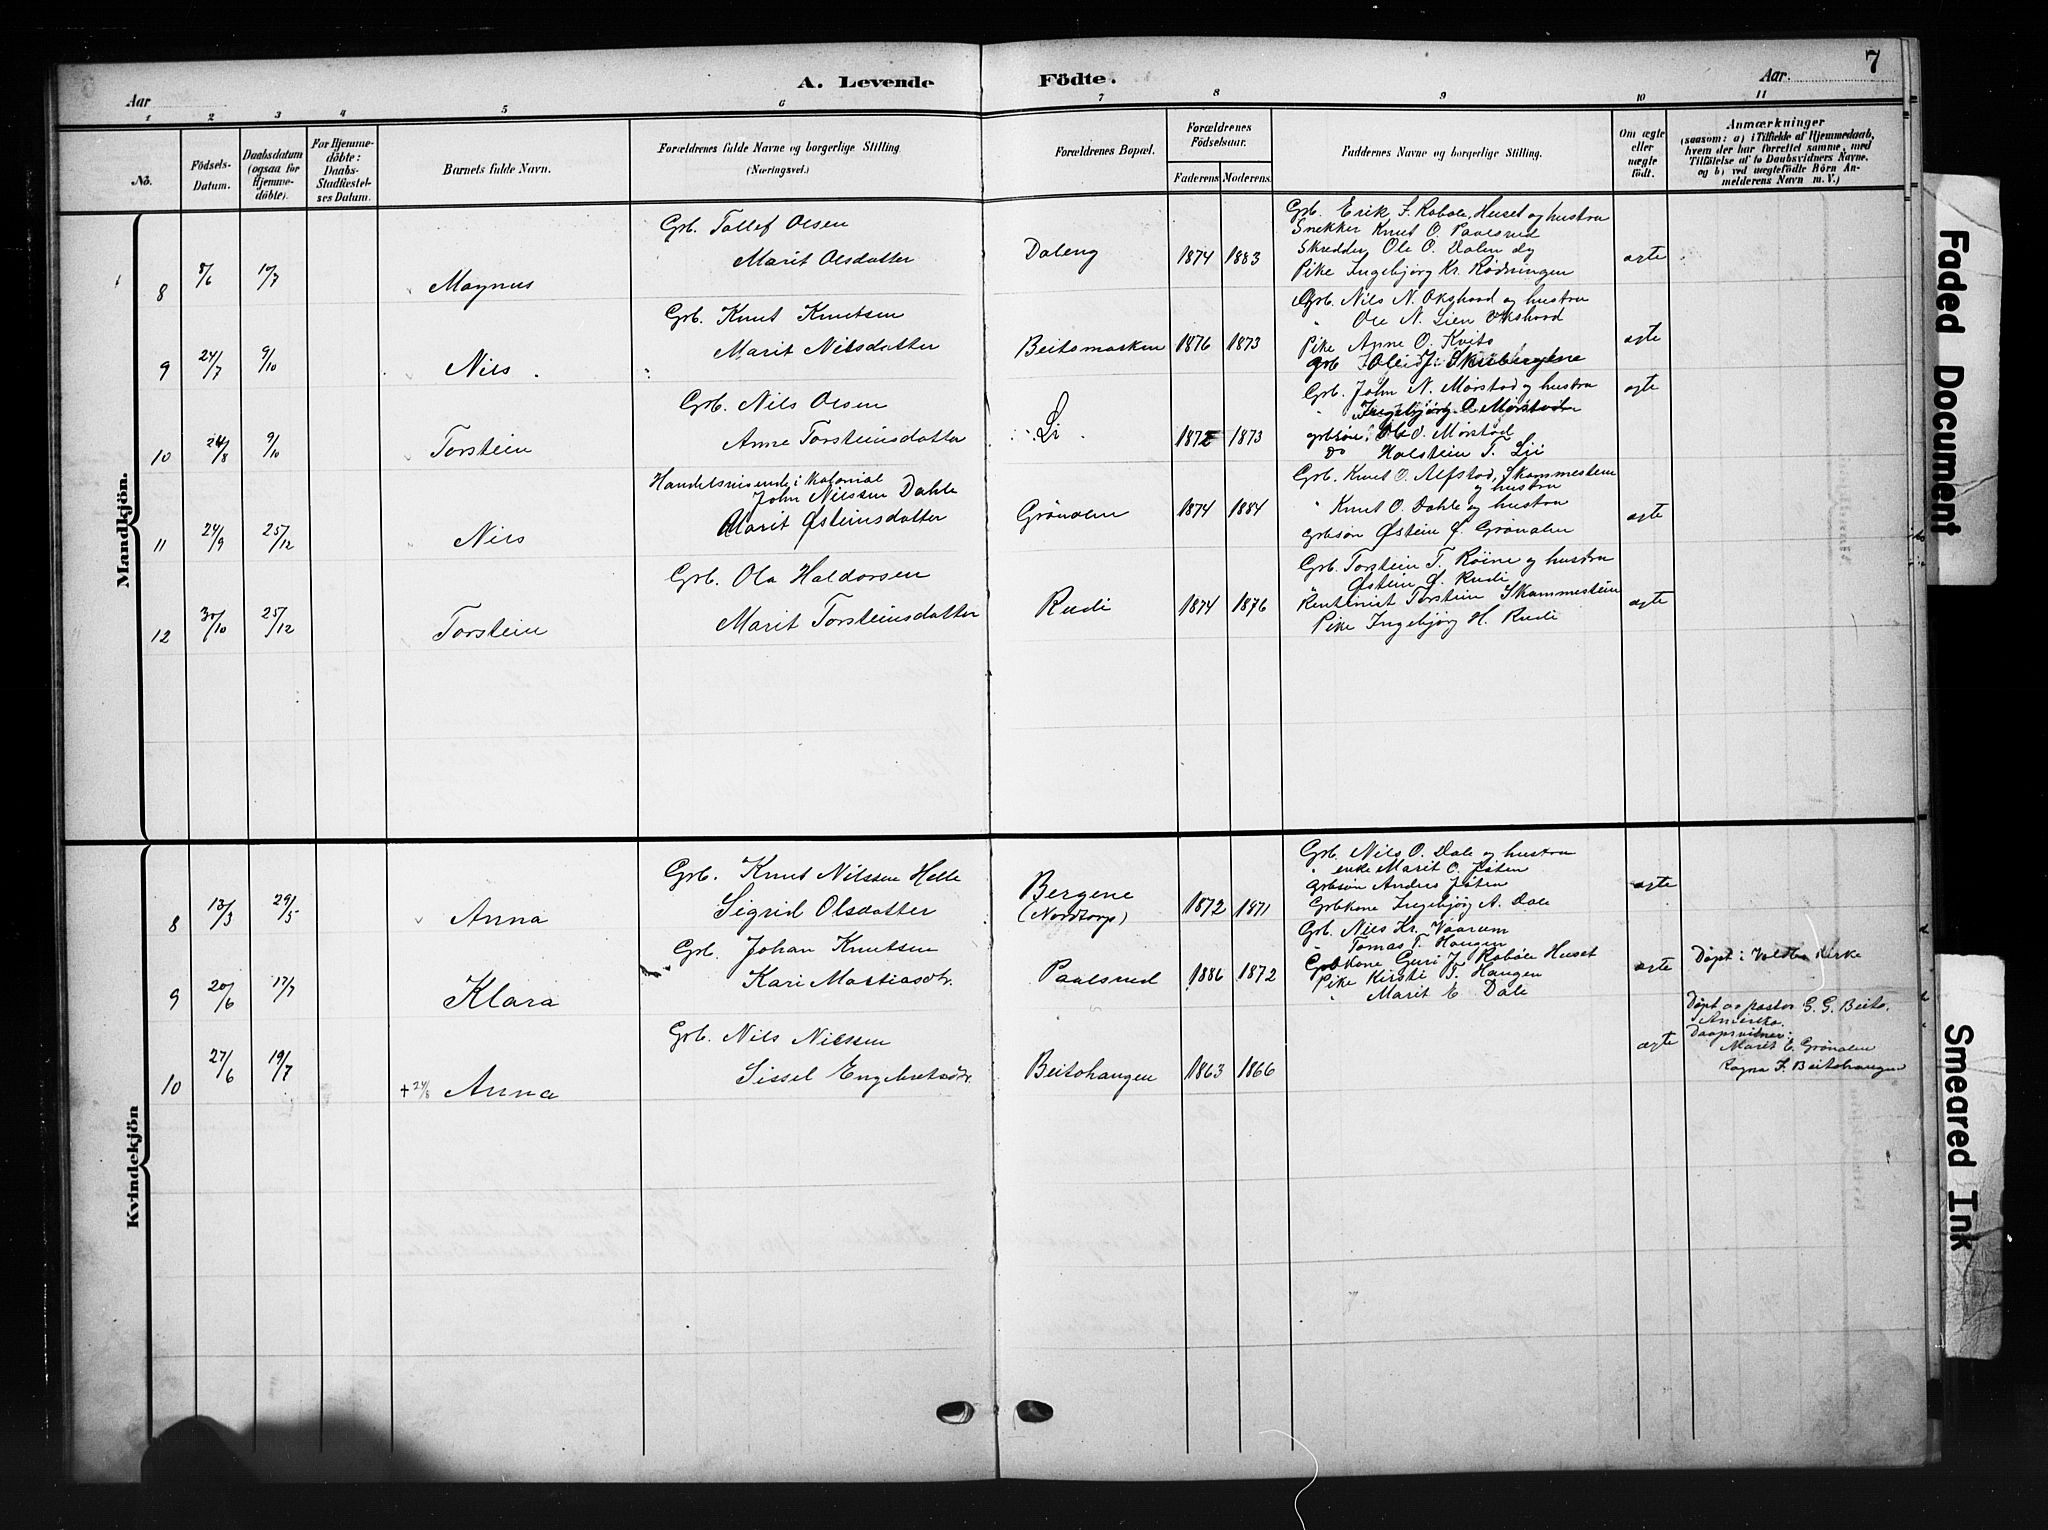 7
A. Levende Födte.
Aar
Aar.
1 2 3 4 5 6 7 8 9 10 11
No.
Födsels-Datum.
Daabsdatum (ogsaa for Hjemmedöbte).
For Hjemmedöbte: Daabs-Stadfæstelses Datum.
Barnets fulde Navn.
Forældrenes fulde Navne og borgerlige Stilling (Næringsvei.)
Forældrenes Bopæl.
Forældrenes Födselsaar.
Faderens
Moderens.
Faddernes Navne og borgerlige Stilling.
Om ægte eller uægte födt.
Anmærkninger
(saasom: a) i Tilfælde af Hjemmedaab,
hvem der har forrettet samme, med
Tilföielse af to Daabsvidners Navne.
og b) ved uægtefödte Börn An-
melderens Navn m. V.)
Mandkjön.
Grb. Tollef Olsen
Marit Olsdatter
8 8/6 10/7 Magnus
Daleng 1874 1883
Grb. Erik J. Robøle, Huset og hustru
Snekker Knut O. Paalsrud
Skredder Ole O. Dalen og
Pike Ingebjørg Kr. Rødningen
ægte
Grb. Knut Knutsen
Marit Nilsdatter
9 24/7 9/10 Nils
Beitsmarken 1876 1873
Grb. Nils N. Okshovd og hustru
" Ole N. Lien Okshovd
Pike Anne O. Kvito
grb
ægte
Grb. Nils Olsen
Anne Torsteinsdatter
10 24/8 9/10 Torstein
Li 1872 1873
Grb. John N. Mørstad og hustru
" Ingebjørg O Mørstad
grbsøn Ole O. Mørstad
Do Halstein T. Lii
ægte
Handelsreisende i Kolonial
John Nilssen Dahle
Marit Østeinsdatter
11 24/9 25/12 Nils
Grønolen 1874 1884
Grb. Knut O. Alfstad, Skammestein
og hustru
" Knut O. Dahle og hustru
grbsøn Østein Ø. Grønolen
ægte
Grb. Ola Haldorsen
Marit Torsteinsdatter
12 30/10 25/12 Torstein
Rudi 1874 1876
Grb. Torstein T. Røine og hustru
" Østein Ø. Rudi
Rentenist Torstein Skammestein
Pike Ingebjørg H. Rudi
ægte
Kvindekjön
Grb. Knut Nilssen Helle
Sigrid Olsdatter
8 13/3 29/5 Anna
Bergene
(Nordtorp)
1872 1871
Grb. Nils O. Dale og hustru
" enke Marit O. Jøten
Grbsøn Andris Jøten
Grbkone Ingebjørg A. Dale
ægte
Grb. Johan Knutsen
Kari Mattiasdtr.
9 20/6 17/7 Klara
Paalsrud 1886 1872
Grb. Nils Kr. Vaarum
" Tomas T. Haugen
Grbkone Guri J. Robøle Huset
Pike Kirsti T. Haugen
" Marit E. Dale
ægte
Døpt i Voldbo kirke
Grb. Nils Nilssen
Sissel Engebretsdtr.
10 27/6 19/7 + 24/8 Anna
Beitohaugen 1863 1866
ægte
Døpt av pastor G. G. Beito,
Amerika.
Daapsvitner:
Marit E. Grønolen
Ragna J. Beitohaugen
Faded Document
Smeared Ink